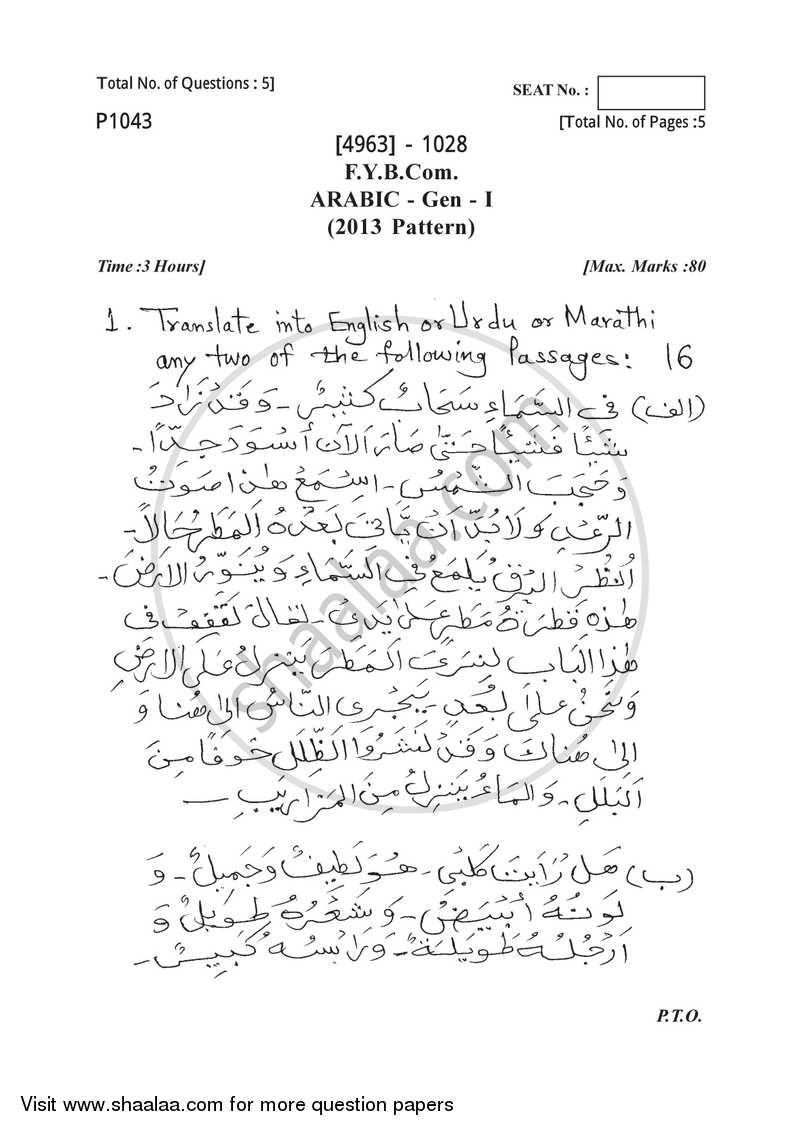 Total No. of Questions : 5]
SEAT No. :
P1043
[Total No. of Pages :5
[4963] - 1028
F.Y.B.Com.
ARABIC - Gen - I
(2013 Pattern)
Time :3 Hours]
[Max. Marks :80
1. Translate into English or Urdu or Marathi
any two of the following Passages: 16
(الف) في السَّمَاءِ سَحَابٌ كَثِيْرٌ - وَقَدْ زَادَ
شَيْئًا فَشَيْئًا حَتّىٰ صَارَ الآنَ أَسْوَدَ جِدًّا -
وَحَجَبَ الشَّمْسَ - اِسْتَمِعْ هٰذا صَوْتُ
الرَّعْدِ وَلَابُدَّ اَنْ يَّاتِىَ بَعْدَهُ المَطَرُ حَالاً -
اُنْظُرْ البَرْقُ يَلْمَعُ فِي السَّمَاءِ وَيُنَوِّرُ الارْضَ -
هٰذِه قَطْرَةُ مَطَرٍ عَلىٰ يَدِىْ - تعَالَ نَقِفْ فى
هٰذا البَابِ لِنَرَى المَطَرَ يَنْزِلُ عَلَى الارْضِ
وَنَحْنُ عَلىٰ بُعْدٍ - يَجْرِى النَّاسُ الىٰ هُنا وَ
الىٰ هُنَاكَ وَقَدْ نَشَرُوا الظُّلَلَ خَوْفًا مِنَ
البَلَلِ - وَالمَاءُ يَنْزِلُ مِنَ المَزَارِيْبِ —
(ب) هَلْ رَأَيْتَ كَلْبِي - هُوَ لَطِيْفٌ وَجَمِيْلٌ - وَ
لَوْنُهُ أَبْيَضُ - وَشَعْرُهُ طَوِيْلٌ وَ
اَرْجُلُهُ طَوِيْلَةٌ - وَرَاسُهُ كَبِيْرٌ -
P.T.O.
shaalaa.com
Visit www.shaalaa.com for more question papers